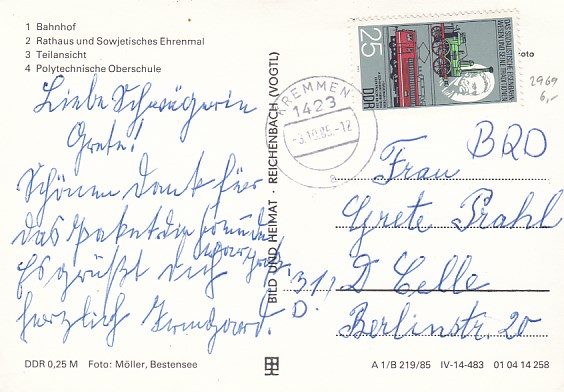 1 Bahnhof
2 Rathaus und Sowjetisches Ehrenmal
3 Teilansicht
4 Polytechnische Oberschule
Liebe Schwägerin
Grete!
Schönen Dank für
das Paket die Freunde
war groß.
Es grüßt dich
herzlich Irmgard.
BILD UND HEIMAT · REICHENBACH (VOGTL)
25
DDR
KREMMEN
1423
-3.10.85.-12
foto
2969
6,-
BRD
Frau
Grete Prahl
311
D Celle
D.
Berlinstr. 20
DDR 0,25 M Foto: Möller, Bestensee
A 1/B 219/85 IV-14-483 01 04 14 258